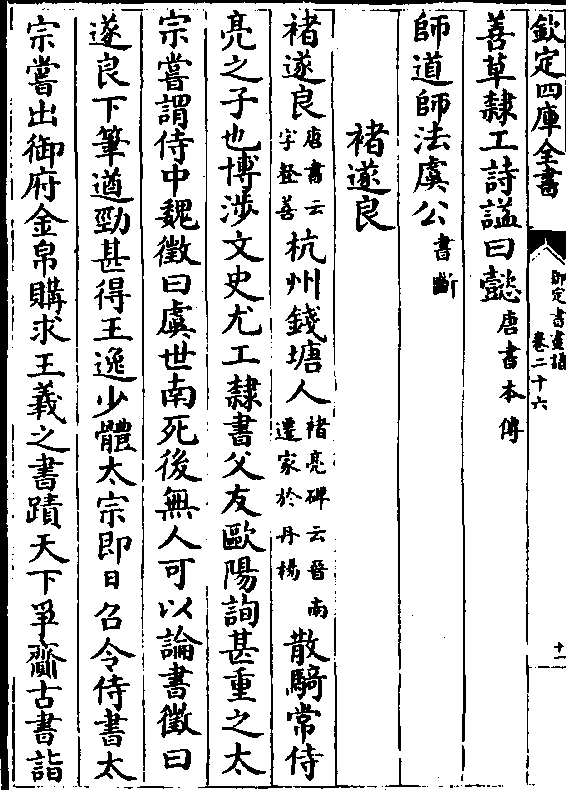 欽定四庫全書
御定書畫譜
卷二十六
十一
善草隸工詩諡曰懿唐書本傳
師道師法虞公書斷
褚遂良
褚遂良唐書云字登善杭州錢塘人褚亮碑云晉南遷家於丹楊散騎常侍
亮之子也博涉文史尤工隸書父友歐陽詢甚重之太
宗嘗謂侍中魏徵曰虞世南死後無人可以論書徵曰
遂良下筆遒勁甚得王逸少體太宗即日召令侍書太
宗嘗出御府金帛購求王羲之書蹟天下爭齎古書詣